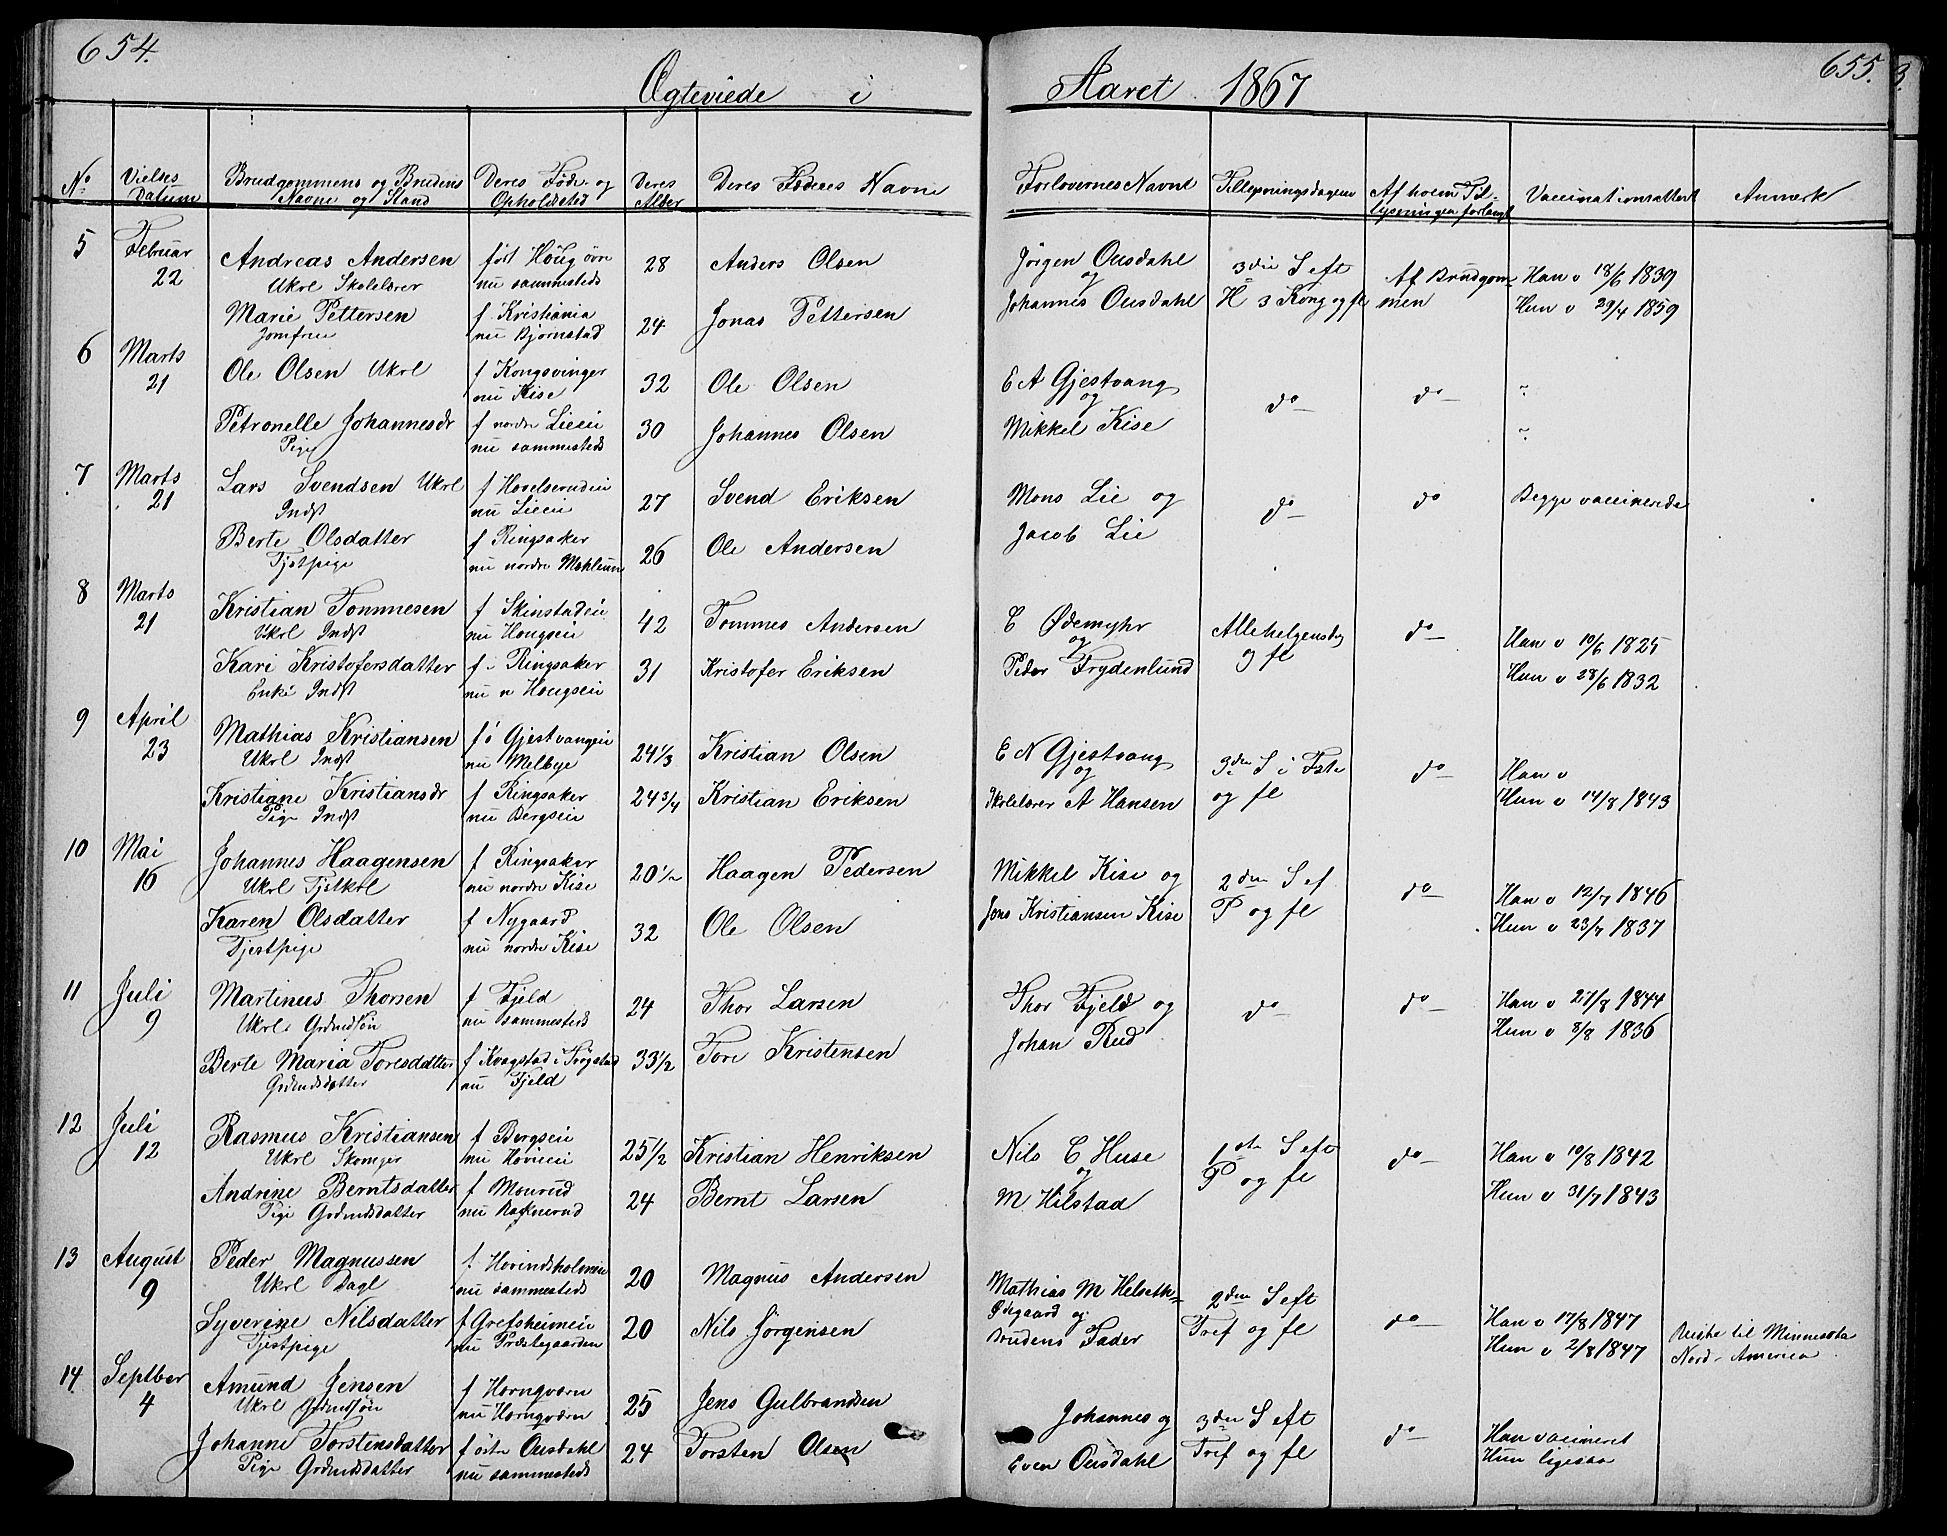 654.
Ægteviede i Aaret 1867
655.
No
Vielses Datum
Brudgommens og Brudens Navne og Stand
Deres Føde- og Opholdsted
Deres Alder
Deres Fædres Navne
Forlovernes Navne
Tillysningsdagene
Af hvem Tillysningen forlangt
Vaccinationsattest
Anmærk
5 Februar 22
Andreas Andersen
Ukrl Skolelærer
født Houg øvre
nu sammesteds
28
Anders Olsen
Marie Pettersen
Jomfrue
f Kristiania
nu Bjørnstad
24
Jonas Pettersen
Jørgen Ousdahl
og
Johannes Ousdahl
3die S eft
H 3 Kong og fl
Af Brudgommen
Han v 18/6 1839
Hun v 29/4 1859
6 Marts 21
Ole Olsen Ukrl
f Kongsvinger
nu Kise
32
Ole Olsen
Petronelle Johannesdr
Pige
f nordre Lieeie
nu sammesteds
30
Johannes Olsen
E A Gjestvang
og
Mikkel Kise
do
do
7 Marts 21
Lars Svendsen Ukrl
Indst
f Hovelsrudeie
nu Lieeie
27
Svend Eriksen
Berte Olsdatter
Tjstpige
f Ringsaker
nu nordre Mæhlum
26
Ole Andersen
Mons Lie og
Jacob Lie
do
do
Begge vaccinerede
8 Marts 21
Kristian Tommesen
Ukrl Indst
f Skinstadeie
nu Hougseie
42
Tommes Andersen
Kari Kristofersdatter
Enke Indst
f Ringsaker
nu n Hougseie
31
Kristofer Eriksen
E Ødemyhr
og
Peder Frydenlund
Allehelgensdg
og fl
do
Han v 10/6 1825
Hun v 28/6 1832
9 April 23
Mathias Kristiansen
Ukrl Indst
f i Gjestvangeie
nu Melbye
24 1/3
Kristian Olsen
Kristiane Kristiansdr
Pige Indst
f Ringsaker
nu Bergseie
24 3/4
Kristian Eriksen
E N Gjestvang
og
Skolelærer A Hansen
3die S i Fste
og fl
do
Han v
Hun v 14/8 1843
10 Mai 16
Johannes Haagensen
Ukrl Tjstkrl
f Ringsaker
nu nordre Kise
20 1/2
Haagen Pedersen
Karen Olsdatter
Tjestpige
f Nygaard
nu nordre Kise
32
Ole Olsen
Mikkel Kise og
Jens Kristiansen Kise
2den S ef
P og fl
do
Han v 12/7 1846
Hun v 23/7 1837
11 Juli 9
Martinus Thorsen
Ukrl Grdmdsøn
f Fjeld
nu sammesteds
24
Thor Larsen
Berte Maria Toresdatter
Grdmdsdatter
f Kragstad i Trøgstad
nu Fjeld
33 1/2
Tore Kristensen
Thor Fjeld og
Johan Rud
do
do
Han v 27/8 1844
Hun v 8/8 1836
12 Juli 12
Rasmus Kristiansen
Ukrl Skomger
f Bergseie
nu Hovieeie
25 1/2
Kristian Henriksen
Andrine Berntsdatter
Pige Grdmdsdatter
f Mourud
nu Ragnerud
24
Bernt Larsen
Nils C Huse
og
M Hilstad
1ste S eft
P og fl
do
Han v 10/8 1842
Hun v 31/7 1843
13 August 9
Peder Magnussen
Ukrl Dagl
f Hovindsholmeie
nu sammesteds
20
Magnus Andersen
Syverine Nilsdatter
Tjestpige
f Grefsheimeie
nu Præstegaarden
20
Nils Jørgensen
Mathias M Helseth-
Ødegaard og
Brudens Fader
2den S eft
Tref og fl
do
Han v 17/8 1847
Hun v 2/8 1847
Reiste til Minnesota
Nord-America
14 Septber 4
Amund Jensen
Ukrl Grdmdsøn
f Horngværn
nu Horngværn
25
Jens Gulbrandsen
Johanne Torstensdatter
Pige Grdmdsdatter
f østre Ousdahl
nu sammesteds
24
Torsten Olsen
Johannes og
Even Ousdahl
3die S eft
Tref og fl
do
Han vaccineret
Hun ligesaa